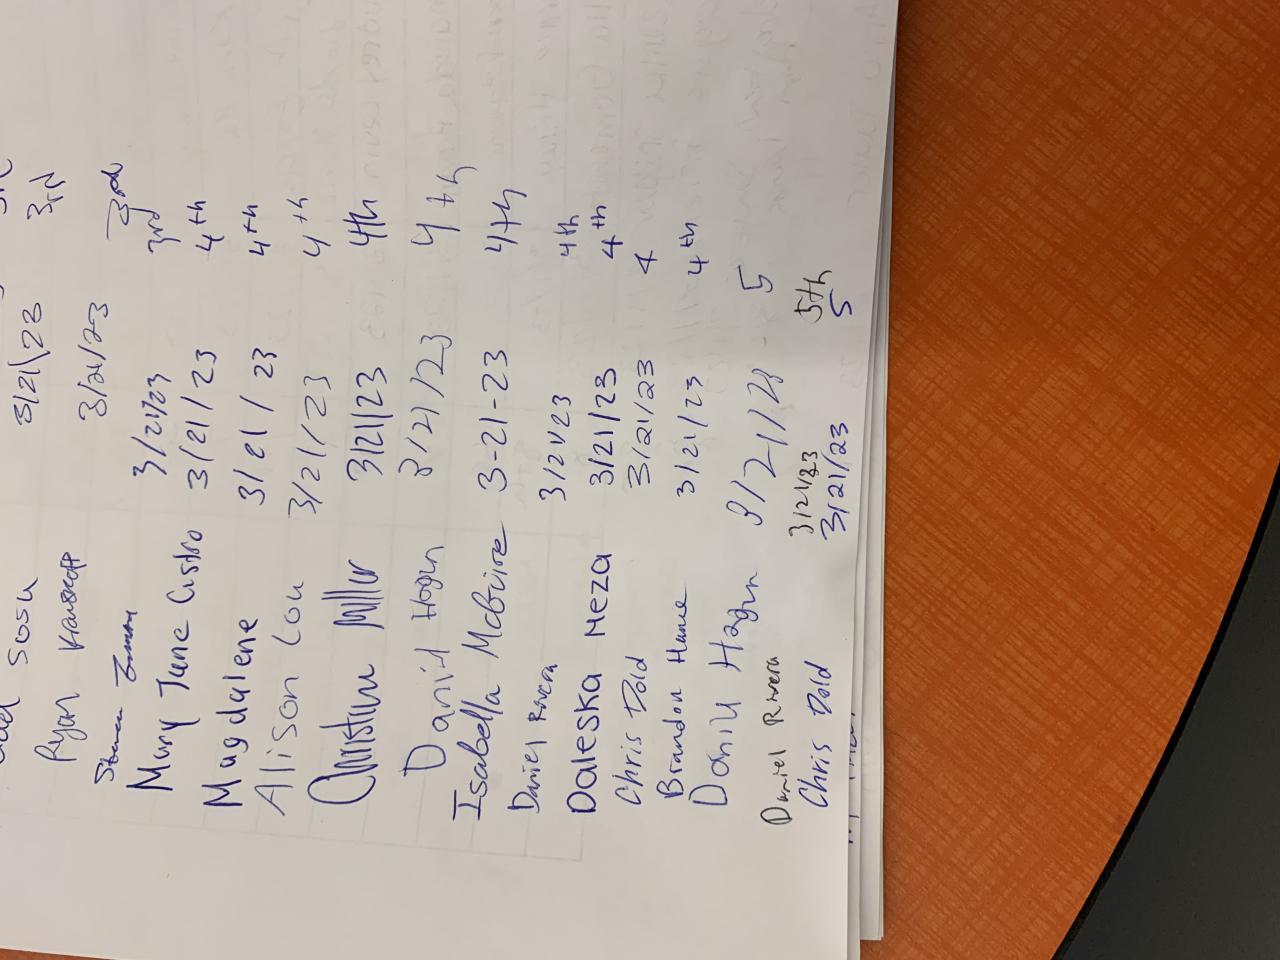 Sosu 3/21/23 3rd
Ryan 3/21/23 3rd
3/21/23 3rd
Mary June Castro 3/21/23 3rd
Magdalene 3/21/23 4th
Alison Lou 3/21/23 4th
Christine Miller 3/21/23 4th
Daniil Hogun 3/21/23 4th
Isabella McGuire 3-21-23 4th
Daniel Rivera 3/21/23 4th
Daleska Meza 3/21/23 4th
Chris Dold 3/21/23 4
Brandon Hume 3/21/23 4th
Daniil Hogun 3/21/23 5
Daniel Rivera 3/21/23 5th
Chris Dold 3/21/23 5